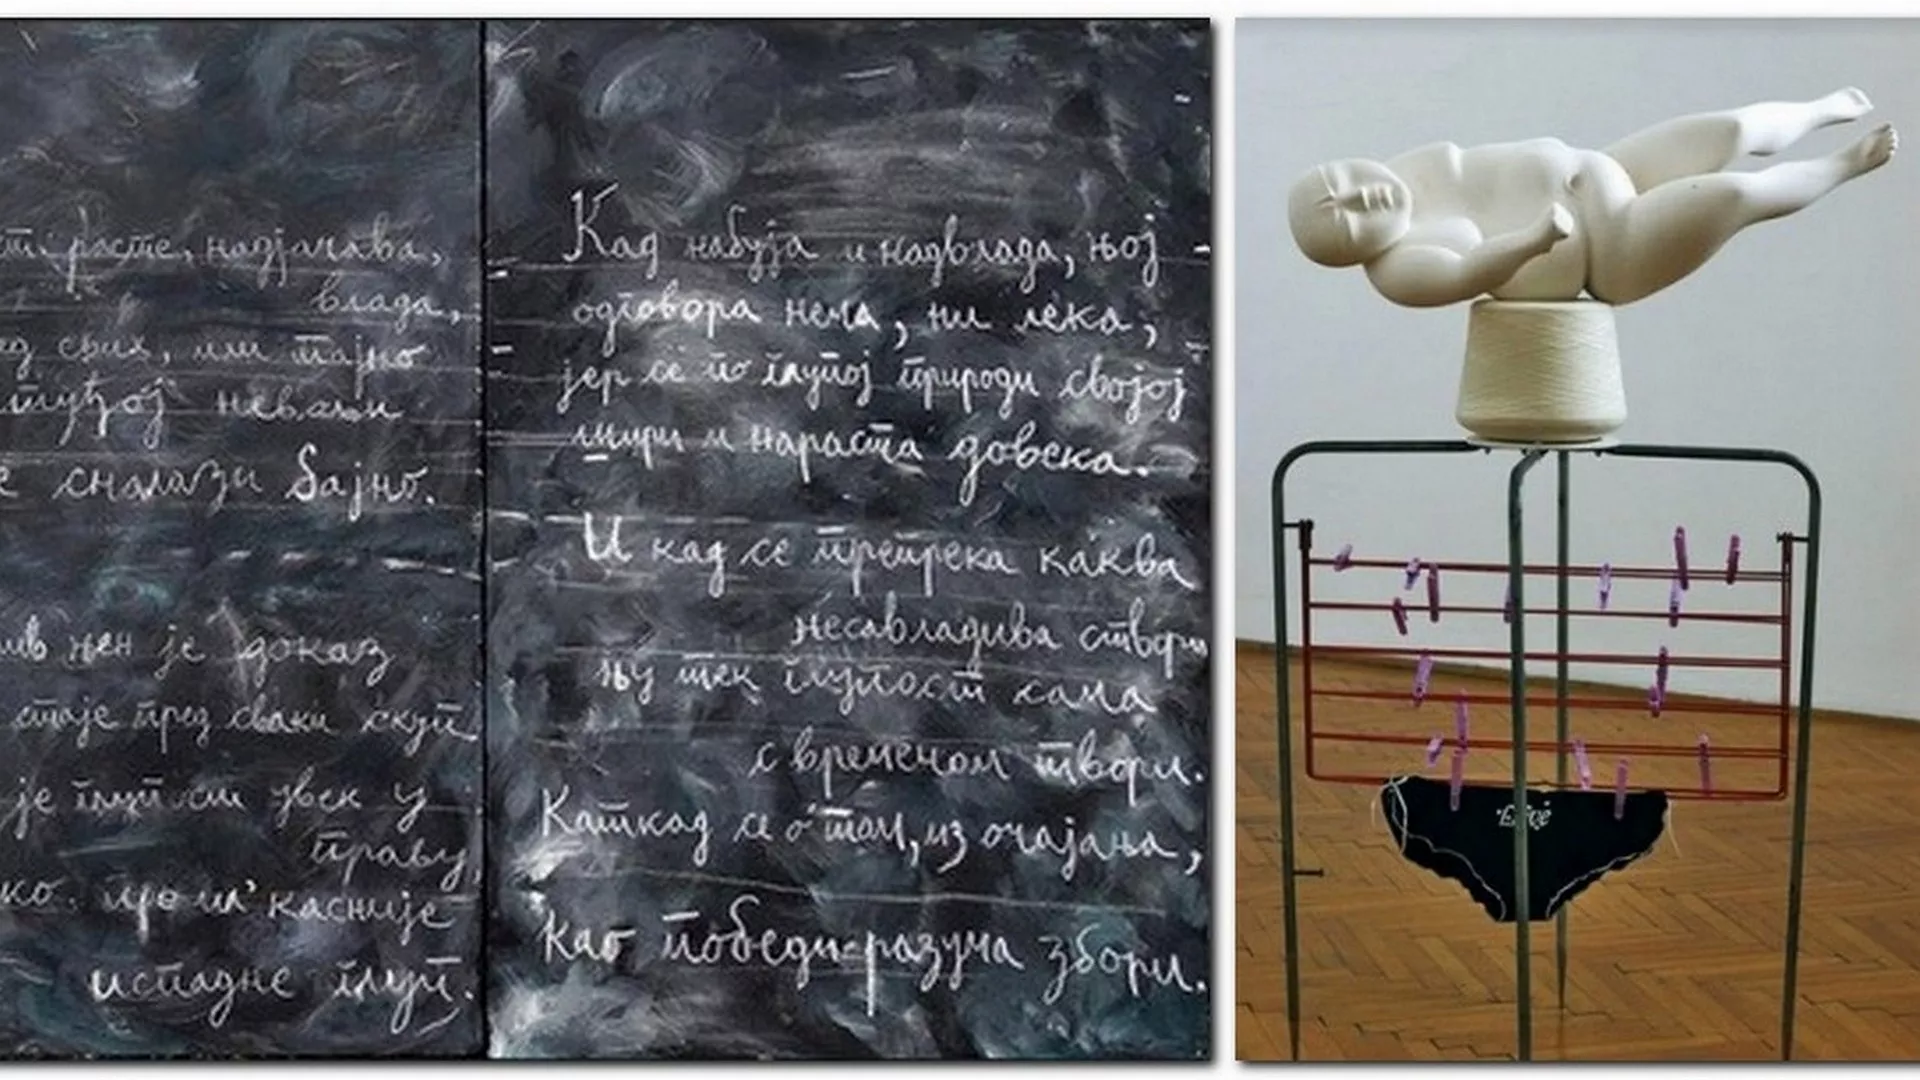 расте, надјачава,
влада,
свих, или тајно
туђој невољи
сналази бајно.
њен је доказ
стаје пред сваки скуп
је глупости увек у
праву,
касније
испадне глуп.
Кад набуја и надвлада, њој
одговора нема, ни лека,
јер се по глупој природи својој
шири и нараста довека.
И кад се препрека каква
несавладива створи
њу тек глупост сама
с временом твори.
Каткад се о том, из очајања,
као победи разума збори.